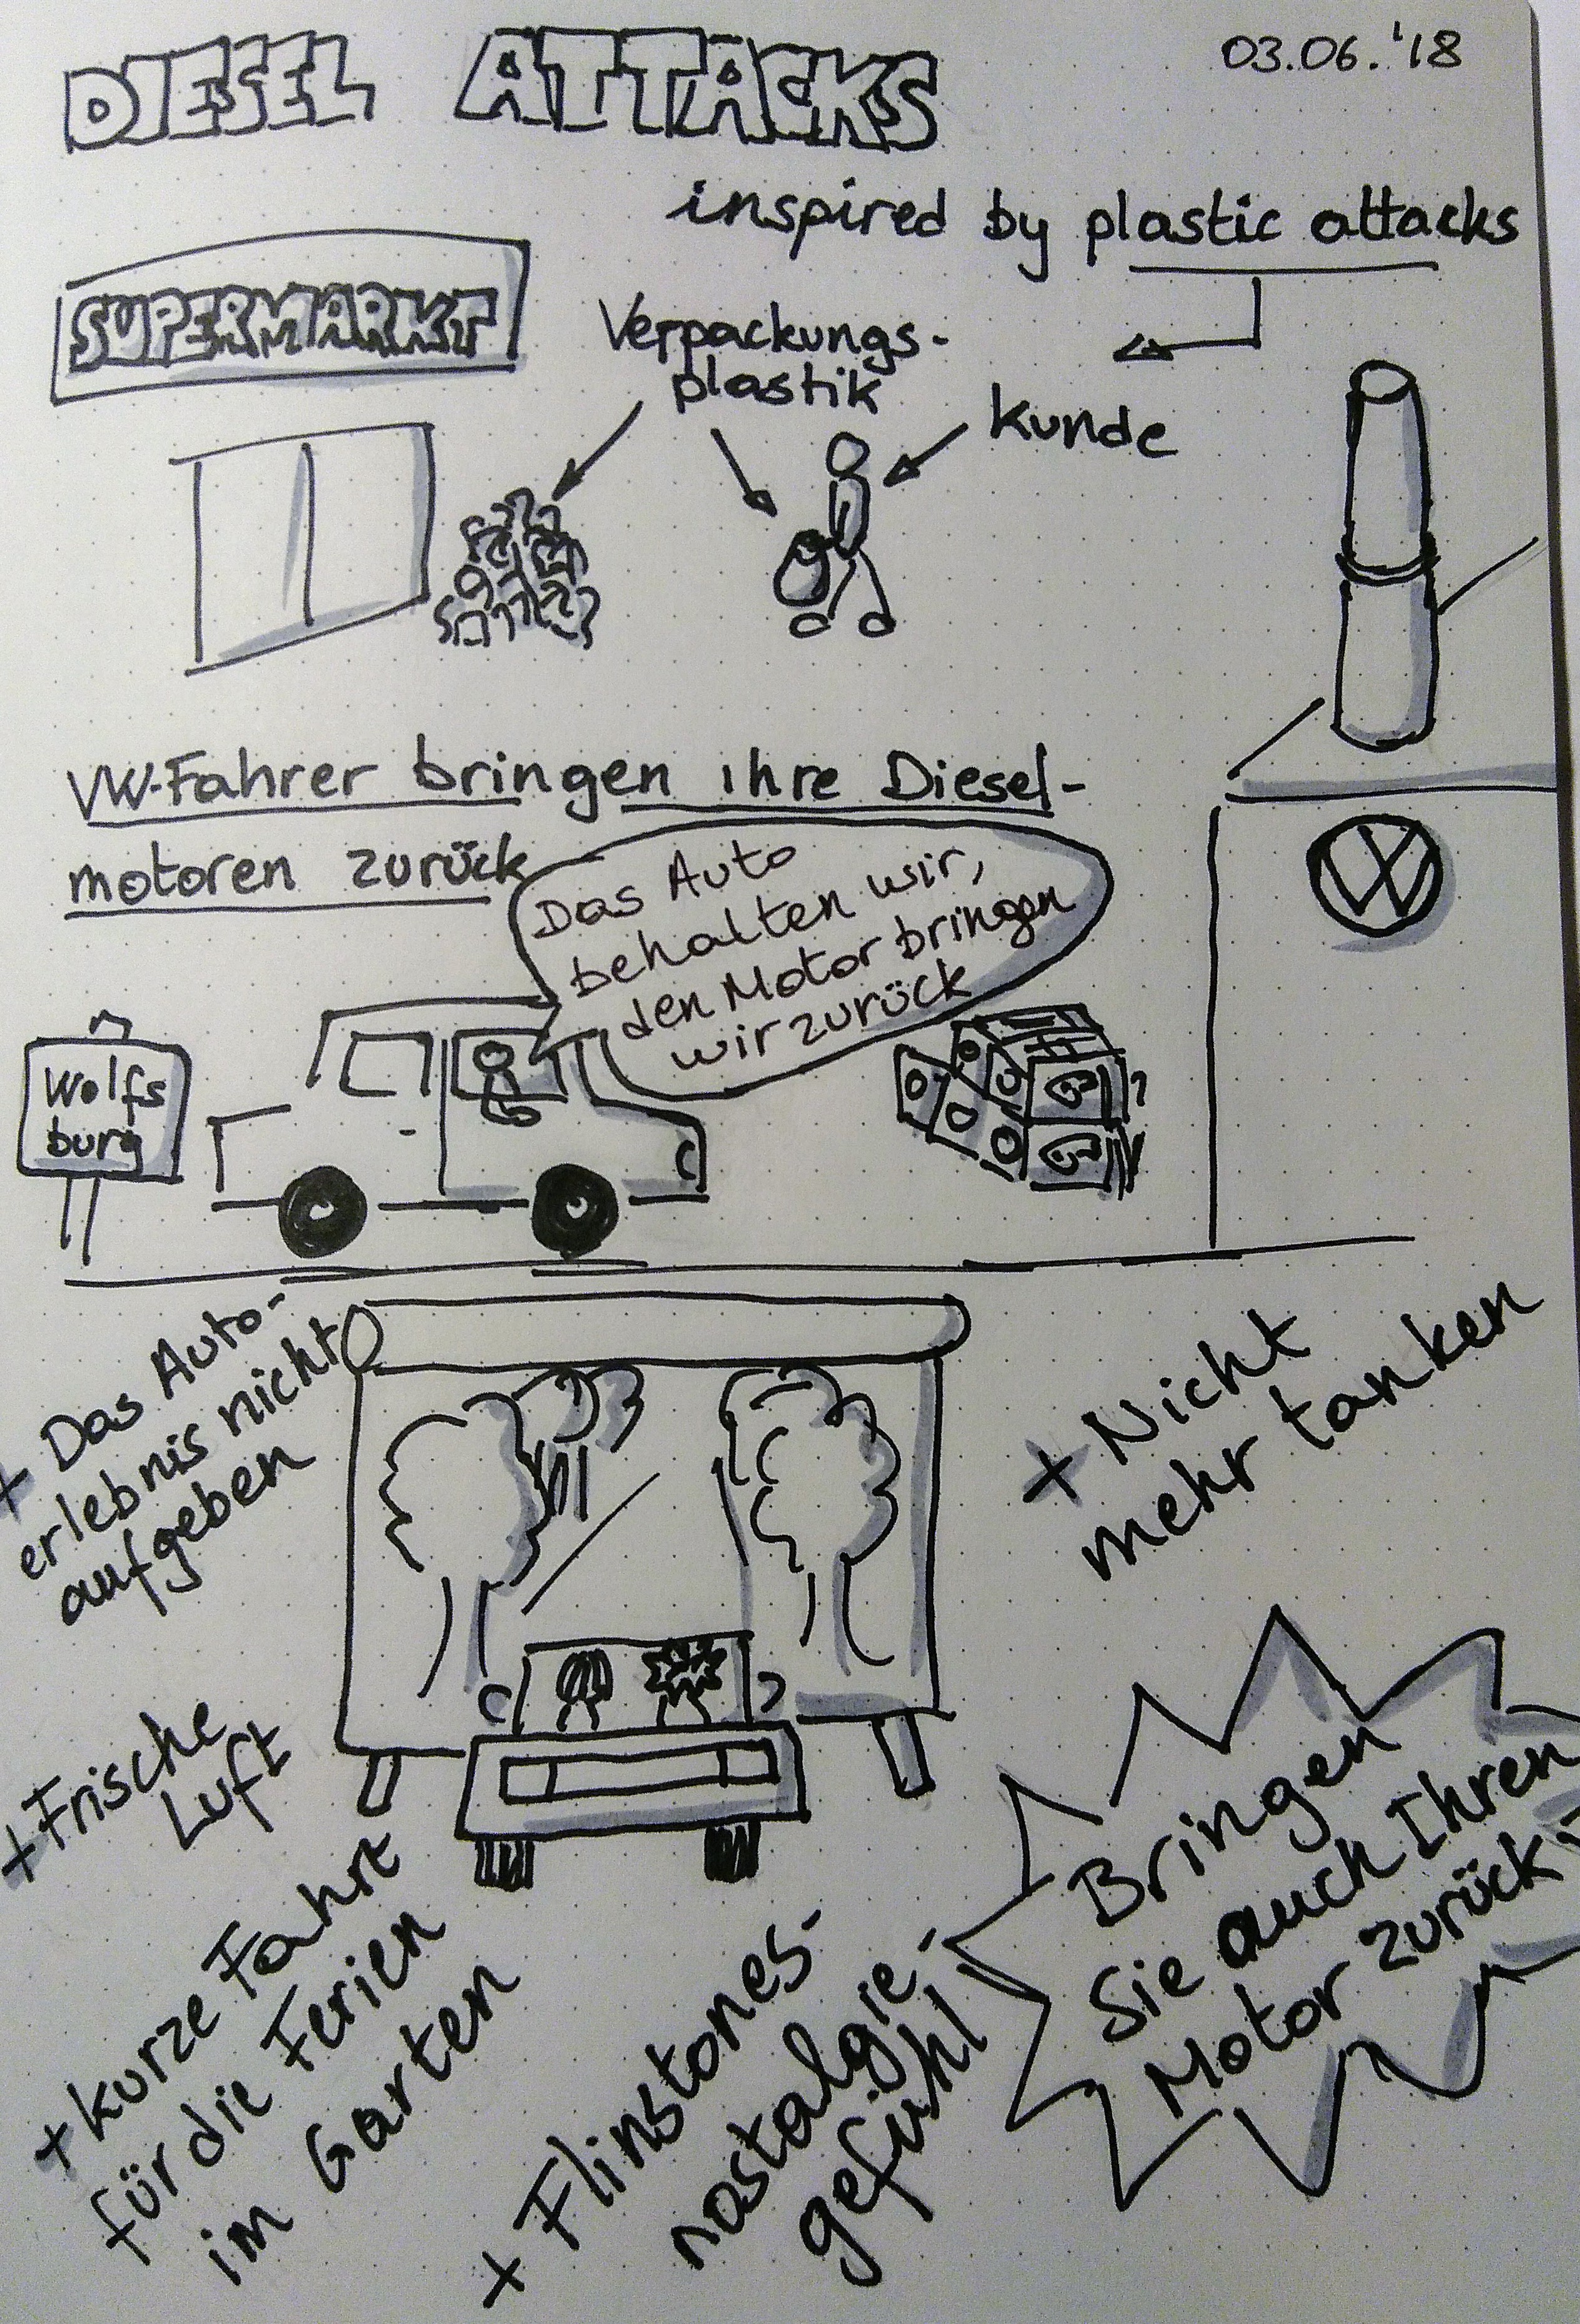 DIESEL ATTACKS
03.06.'18
inspired by plastic attacks
SUPERMARKT
Verpackungs-
plastik
Kunde
VW-Fahrer bringen ihre Diesel-
motoren zurück
Das Auto
behalten wir,
den Motor bringen
wir zurück
VW
Wolfs
burg
+ Das Auto-
erlebnis nicht
aufgeben
+ Nicht
mehr tanken
+ Frische
Luft
+ kurze Fahrt
für die Ferien
im Garten
+ Flinstones-
nostalgie-
gefühl
Bringen
Sie auch Ihren
Motor zurück!